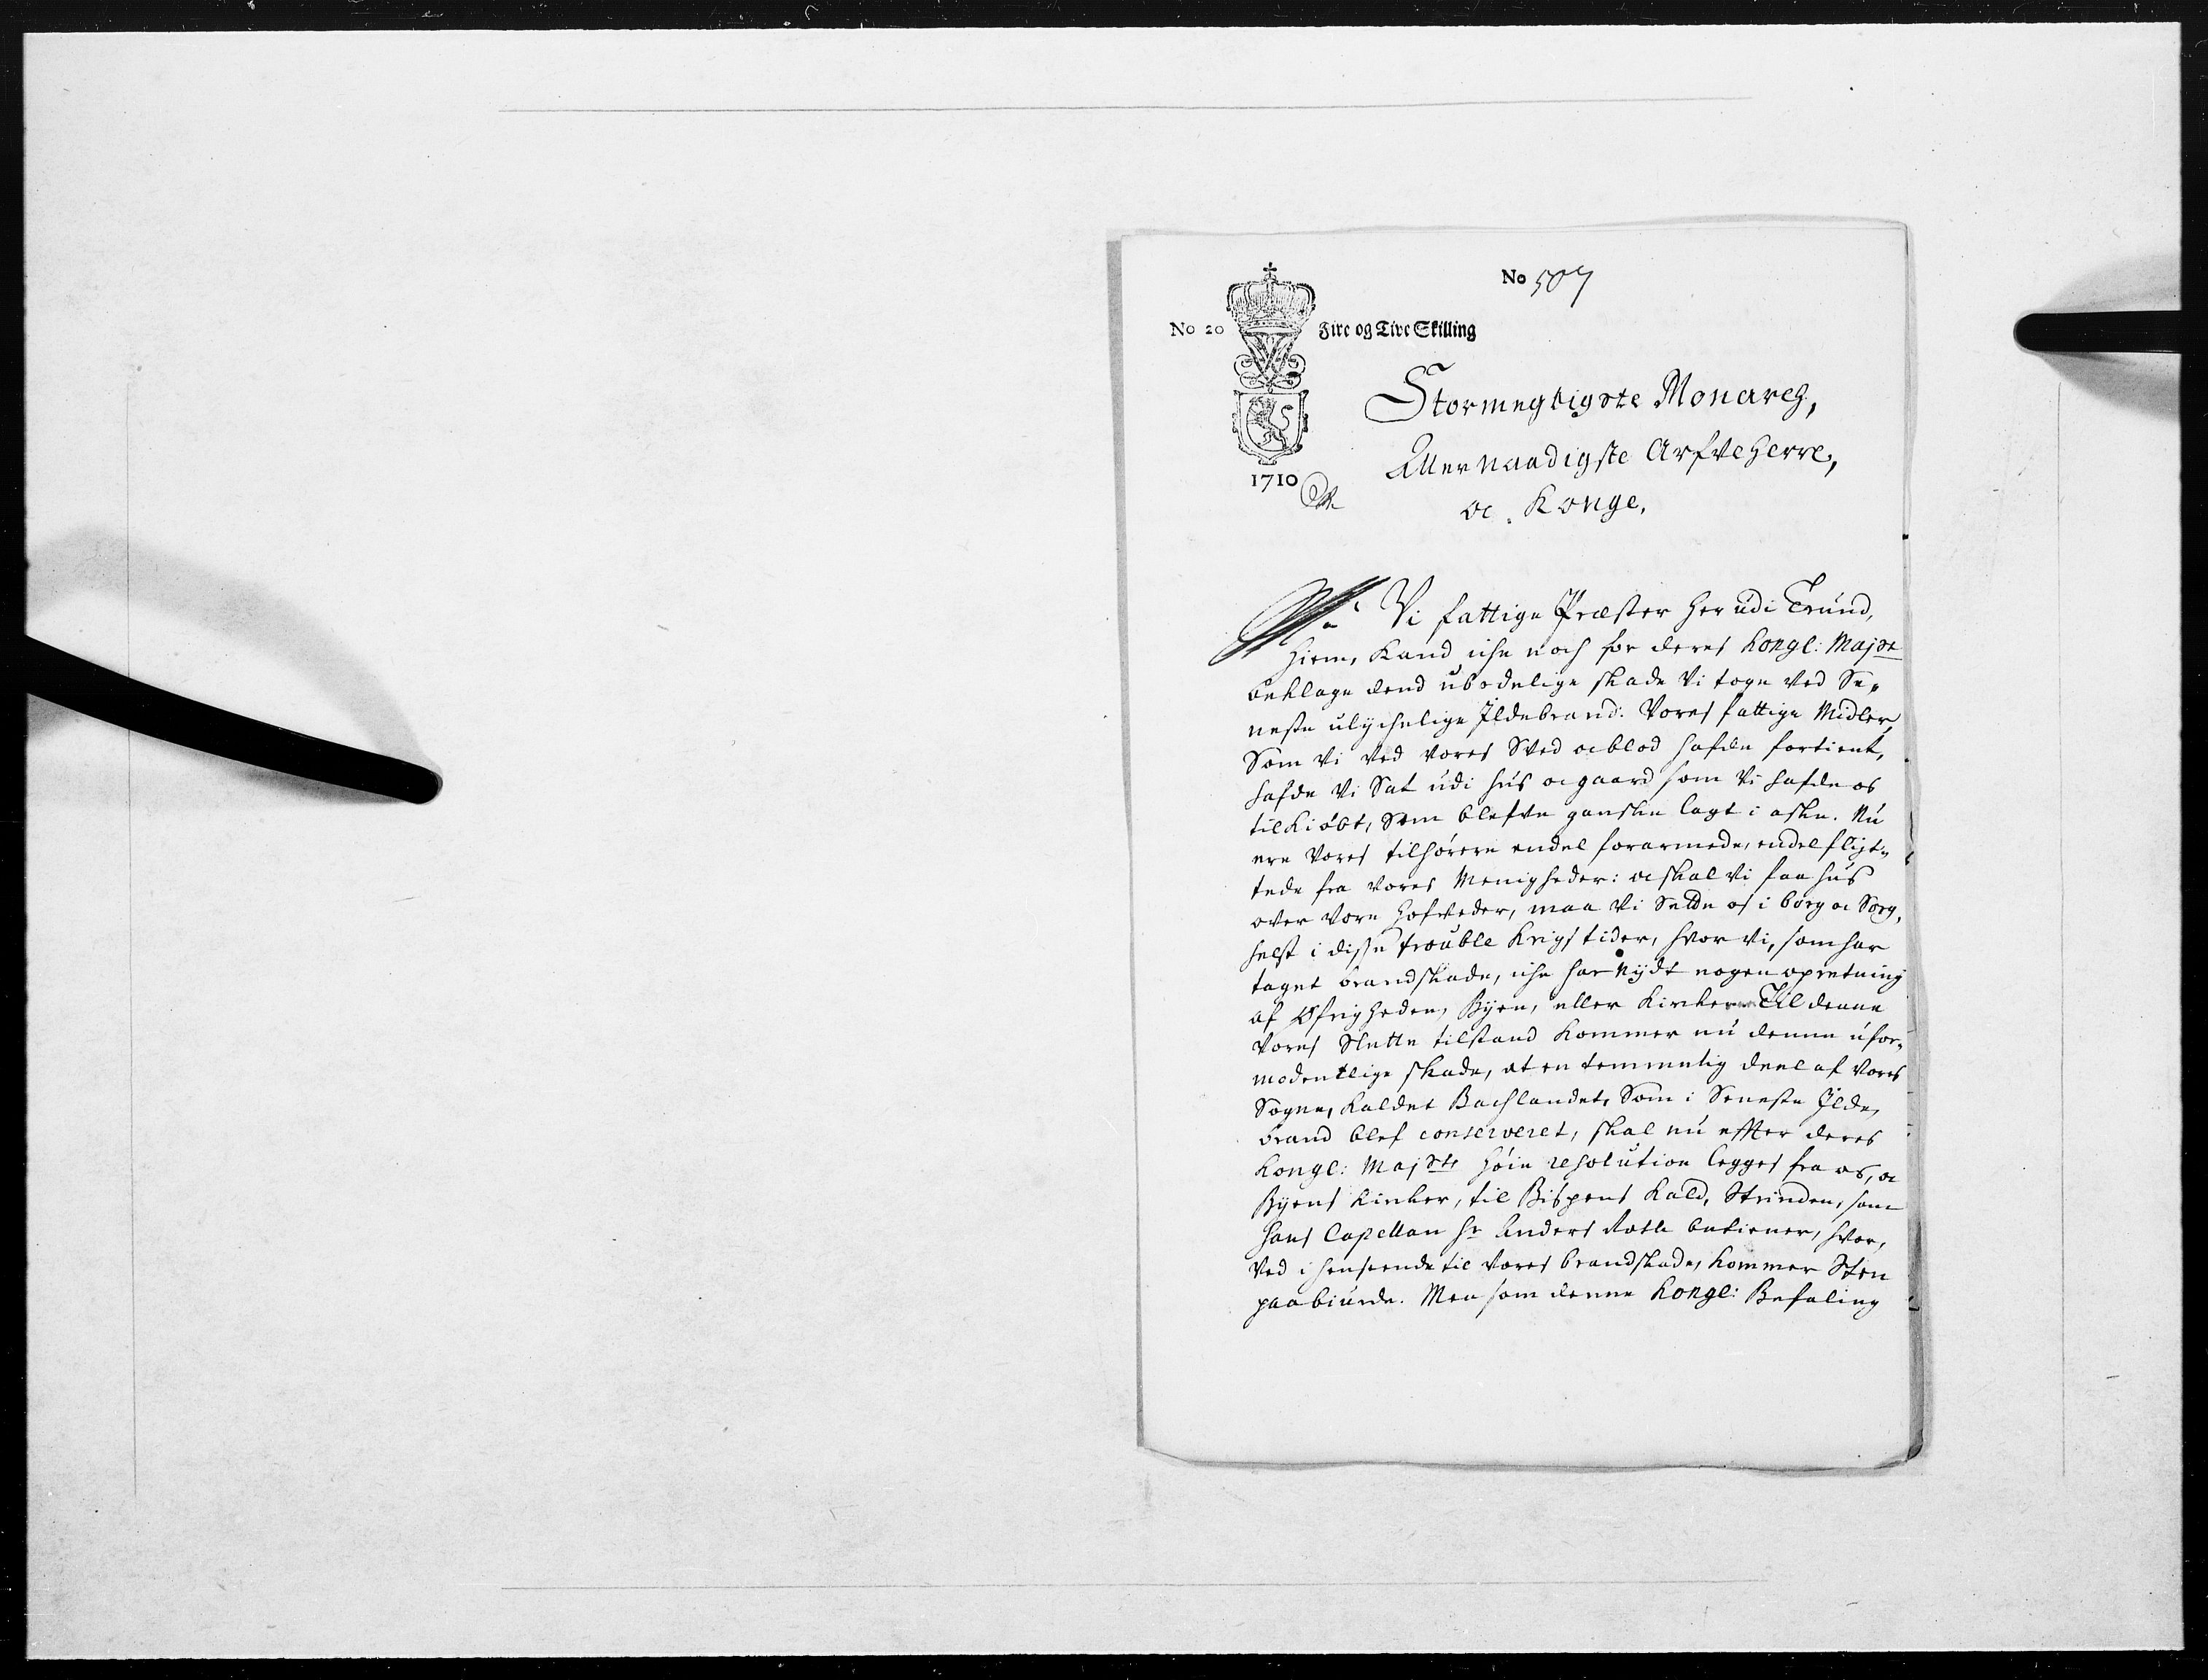 No 507
No 20 Fire og Tive Skilling
Stormegtigste Monarch,
Allernaadigste Arfveherre,
oc Konge,
1710
Vi fattige Præster her udi Trund,
hiem, Kand iche noch for deres Kongl: Majst
beklage dend ubodelige skade Vi toge Ved Se„
neste ulychelige Ildebrand: Vores fattige Midler,
Som Vi Ved Vores Sved oc blod hafde fortient,
hafde Vi Sat udi huus oc gaard som Vi hafde os
tilkiøbt, Som blefve ganske lagt i aske. Nu
ere Vores tilhørere endel forarmede, endel flyt„
tede fra Vores Menigheder: oc skal Vi faa huus
over Vore Hofveder, maa Vi Sette os i borg oc Sorg,
helst i disse trouble Krigs tider, hvor Vi, som har
taget brandskade, iche har nydt nogen opretning
af Øfrigheden, Byen, eller Kirker. Til denne
Vores Slette tilstand Kommer nu denne ufor„
modentlige skade, at en temmelig deel af Vores
Sogne, Kaldet Bachlandet, Som i Seneste Ilde,
brand blef conserveret, skal nu effter deres
Kongl: Majsts høie resolution legges fra os, oc
Byens Kirker, til Bispens Kald, Strinden, som
hans Capellan Hr Anders Rosle betiener, hvor,
Ved i henseende til Vores brandskade, Kommer Sten
paa biurde. Men som denne Kongl: Befaling